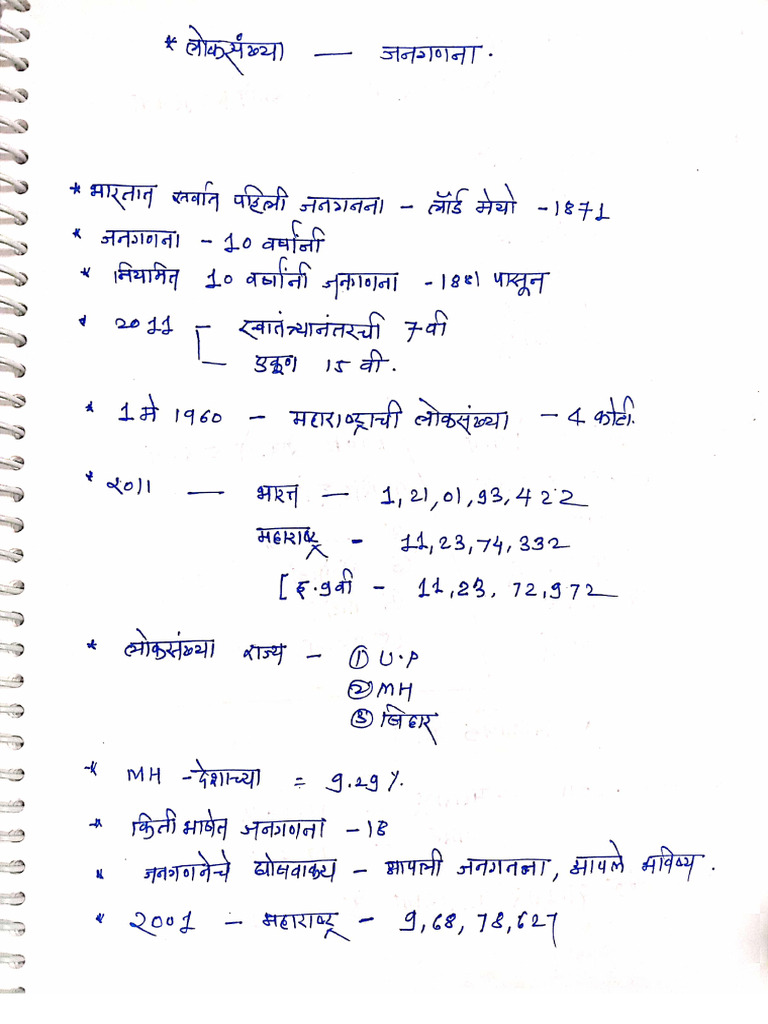 * लोकसंख्या — जनगणना.
* भारतात सर्वात पहिली जनगनना - लॉर्ड मेयो - 1871
* जनगणना - 10 वर्षांनी
* नियमित 10 वर्षांनी जनगणना - 1881 पासून
* 2011 [ स्वातंत्र्यानंतरची 7 वी
एकूण 15 वी.
* 1 मे 1960 - महाराष्ट्राची लोकसंख्या - 4 कोटी.
* 2011 — भारत — 1,21,01,93,422
महाराष्ट्र - 11,23,74,332
[इ.9वी - 11,23,72,972
* लोकसंख्या राज्य - ① U.P
② MH
③ बिहार
* MH - देशाच्या = 9.29%.
* किती भाषेत जनगणना - 18
* जनगणनेचे घोषवाक्य - आपली जनगनना, आपले भविष्य.
* 2001 - महाराष्ट्र - 9,68,78,627